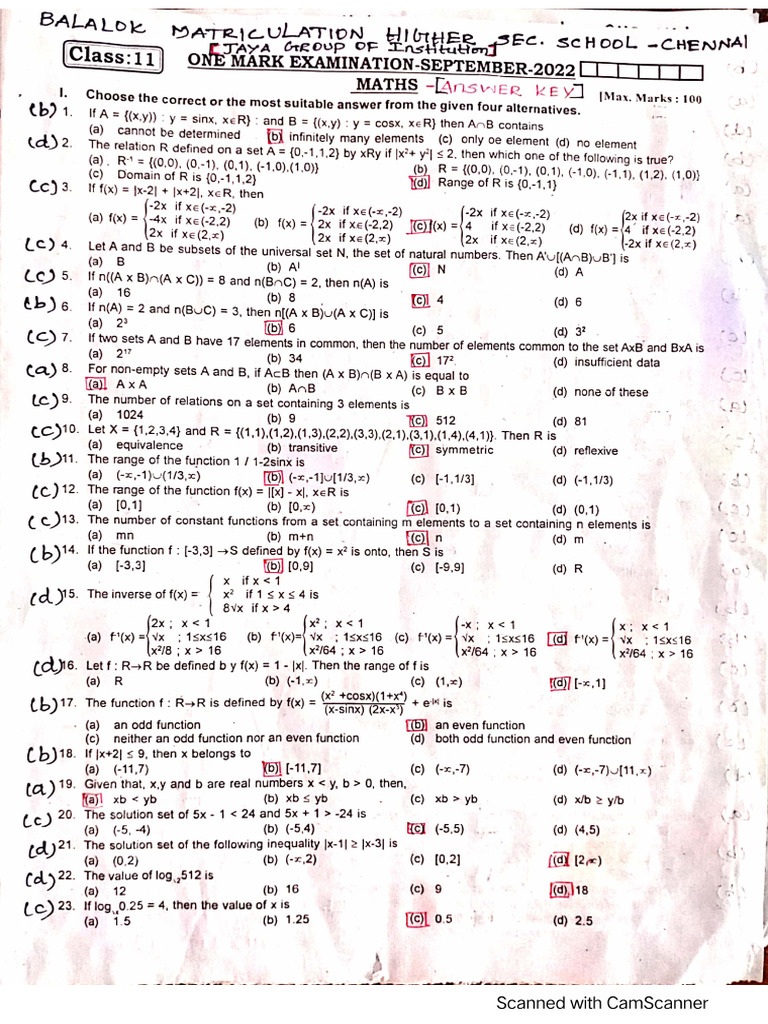 BALALOK MATRICULATION HIGHER SEC. SCHOOL - CHENNAI
[JAYA GROUP OF Institution]
Class:11 ONE MARK EXAMINATION-SEPTEMBER-2022
MATHS -[ANSWER KEY]
I. Choose the correct or the most suitable answer from the given four alternatives. [Max. Marks : 100
(b) 1. If A = {(x,y)) : y = sinx, x∈R} : and B = {(x,y) : y = cosx, x∈R} then A∩B contains
(a) cannot be determined (b) infinitely many elements (c) only oe element (d) no element
(d) 2. The relation R defined on a set A = {0,-1,1,2} by xRy if |x²+ y²| ≤ 2, then which one of the following is true?
(a) . R⁻¹ = {(0,0), (0,-1), (0,1), (-1,0),(1,0)} (b) R = {(0,0), (0,-1), (0,1), (-1,0), (-1,1), (1,2), (1,0)}
(c) Domain of R is {0,-1,1,2} (d) Range of R is {0,-1,1}
(c) 3. If f(x) = |x-2| + |x+2|, x∈R, then
(a) f(x) = {-2x if x∈(-∞,-2) -4x if x∈(-2,2) 2x if x∈(2,∞) (b) f(x) = {-2x if x∈(-∞,-2) 2x if x∈(-2,2) 2x if x∈(2,∞) (c) f(x) = {-2x if x∈(-∞,-2) 4 if x∈(-2,2) 2x if x∈(2,∞) (d) f(x) = {2x if x∈(-∞,-2) 4 if x∈(-2,2) -2x if x∈(2,∞)
(c) 4. Let A and B be subsets of the universal set N, the set of natural numbers. Then A'∪[(A∩B)∪B'] is
(a) B (b) A' (c) N (d) A
(c) 5. If n((A x B)∩(A x C)) = 8 and n(B∩C) = 2, then n(A) is
(a) 16 (b) 8 (c) 4 (d) 6
(b) 6. If n(A) = 2 and n(B∪C) = 3, then n[(A x B)∪(A x C)] is
(a) 2³ (b) 6 (c) 5 (d) 3²
(c) 7. If two sets A and B have 17 elements in common, then the number of elements common to the set AxB and BxA is
(a) 2¹⁷ (b) 34 (c) 17². (d) insufficient data
(a) 8. For non-empty sets A and B, if A⊂B then (A x B)∩(B x A) is equal to
(a) A x A (b) A∩B (c) B x B (d) none of these
(c) 9. The number of relations on a set containing 3 elements is
(a) 1024 (b) 9 (c) 512 (d) 81
(c) 10. Let X = {1,2,3,4} and R = {(1,1),(1,2),(1,3),(2,2),(3,3),(2,1),(3,1),(1,4),(4,1)}. Then R is
(a) equivalence (b) transitive (c) symmetric (d) reflexive
(b) 11. The range of the function 1 / 1-2sinx is
(a) (-∞,-1)∪(1/3,∞) (b) (-∞,-1]∪[1/3,∞) (c) [-1,1/3] (d) (-1,1/3)
(c) 12. The range of the function f(x) = |[x] - x|, x∈R is
(a) [0,1] (b) [0,∞) (c) [0,1) (d) (0,1)
(c) 13. The number of constant functions from a set containing m elements to a set containing n elements is
(a) mn (b) m+n (c) n (d) m
(b) 14. If the function f : [-3,3] →S defined by f(x) = x² is onto, then S is
(a) [-3,3] (b) [0,9] (c) [-9,9] (d) R
(d) 15. The inverse of f(x) = {x if x < 1 x² if 1 ≤ x ≤ 4 is 8√x if x > 4
(a) f⁻¹(x) = {2x ; x < 1 √x ; 1≤x≤16 x²/8 ; x > 16 (b) f⁻¹(x)= {x² ; x < 1 √x ; 1≤x≤16 x²/64 ; x > 16 (c) f⁻¹(x) = {-x ; x < 1 √x ; 1≤x≤16 x²/64 ; x > 16 (d) f⁻¹(x) = {x ; x < 1 √x ; 1≤x≤16 x²/64 ; x > 16
(d) 16. Let f : R→R be defined b y f(x) = 1 - |x|. Then the range of f is
(a) R (b) (-1,∞) (c) (1,∞) (d) [-∞,1]
(b) 17. The function f : R→R is defined by f(x) = (x² +cosx)(1+x⁴) / (x-sinx) (2x-x³) + e^-|x| is
(a) an odd function (b) an even function
(c) neither an odd function nor an even function (d) both odd function and even function
(b) 18. If |x+2| ≤ 9, then x belongs to
(a) (-11,7) (b) [-11,7] (c) (-∞,-7) (d) (-∞,-7)∪[11,∞)
(a) 19. Given that, x,y and b are real numbers x < y, b > 0, then,
(a) xb < yb (b) xb ≤ yb (c) xb > yb (d) x/b ≥ y/b
(c) 20. The solution set of 5x - 1 < 24 and 5x + 1 > -24 is
(a) (-5, -4) (b) (-5,4) (c) (-5,5) (d) (4,5)
(d) 21. The solution set of the following inequality |x-1| ≥ |x-3| is
(a) (0,2) (b) (-∞,2) (c) [0,2] (d) [2,∞)
(d) 22. The value of log√2 512 is
(a) 12 (b) 16 (c) 9 (d) 18
(c) 23. If log√x 0.25 = 4, then the value of x is
(a) 1.5 (b) 1.25 (c) 0.5 (d) 2.5
Scanned with CamScanner